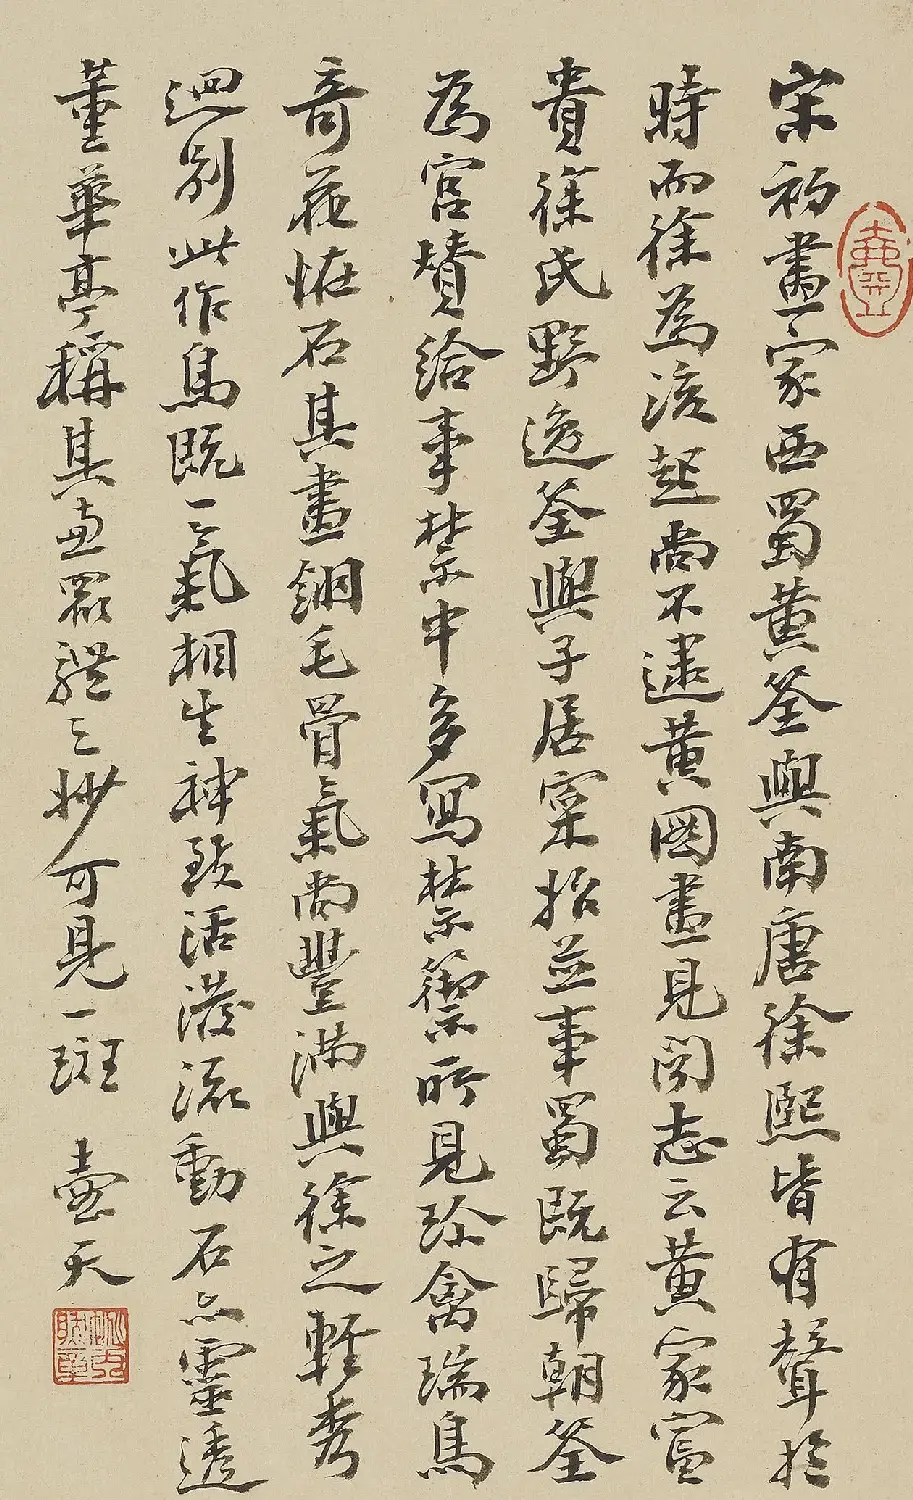 宋初畫家西蜀黄筌與南唐徐熙皆有聲於
時而徐為後起尚不逮黄圖畫見聞志云黄家富
貴徐氏野逸筌與子居寀拾並事蜀既歸朝筌
為宮贊給事禁中多寫禁籞所見珍禽瑞鳥
奇花恠石其畫翎毛骨氣尚豐満與徐之輕秀
迥別此作鳥既一一氣相生神致活潑流動石亦靈透
董華亭稱其畫眾體之妙可見一斑 壺天